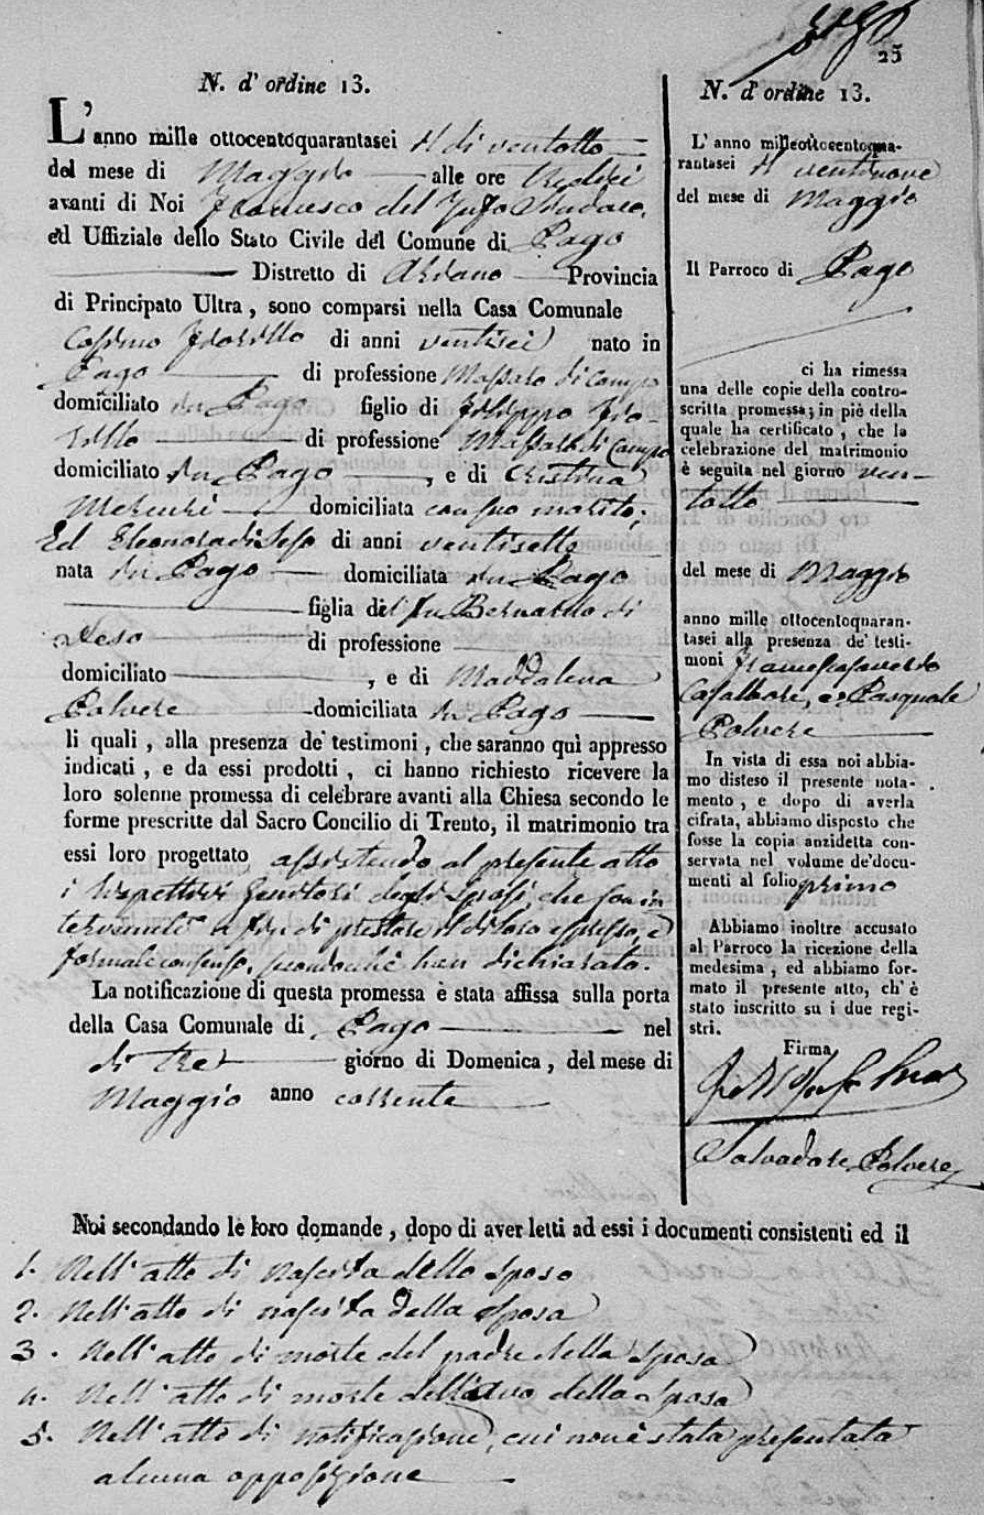 25
N. d' ordine 13.
L'anno mille ottocentoquarantasei il di ventotto
del mese di Maggio alle ore tredici
avanti di Noi Francesco del Sindaco,
ed Uffiziale dello Stato Civile del Comune di Pago
Distretto di Ariano Provincia
di Principato Ultra, sono comparsi nella Casa Comunale
Cosimo Iforillo di anni ventisei nato in
Pago di professione Massaro di Campo
domiciliato in Pago figlio di Filippo
di professione Massaro di Campo
domiciliato in Pago, e di Cristina
Mercuri domiciliata con suo marito;
Ed Eleonora di Leso di anni ventisette
nata in Pago domiciliata in Pago
figlia del fu Bernardo di
Leso di professione
domiciliato, e di Maddalena
Polvere domiciliata in Pago
li quali, alla presenza de' testimoni, che saranno quì appresso
indicati, e da essi prodotti, ci hanno richiesto ricevere la
loro solenne promessa di celebrare avanti alla Chiesa secondo le
forme prescritte dal Sacro Concilio di Trento, il matrimonio tra
essi loro progettato assistendo al presente atto
i rispettivi Genitori degli Sposi, che son in
tervenuti a fin di prestare il di loro espresso, e
formale consenso, secondochè han dichiarato.
La notificazione di questa promessa è stata affissa sulla porta
della Casa Comunale di Pago nel
di tre giorno di Domenica, del mese di
Maggio anno corrente
N. d' ordine 13.
L' anno milleottocentoqua-
rantasei il ventinove
del mese di Maggio
Il Parroco di Pago
ci ha rimessa
una delle copie della contro-
scritta promessa; in piè della
quale ha certificato, che la
celebrazione del matrimonio
è seguita nel giorno ven-
totto
del mese di Maggio
anno mille ottocentoquaran-
tasei alla presenza de' testi-
moni Francesco Saverio
Casalbore, e Pasquale
Polvere
In vista di essa noi abbia-
mo disteso il presente nota-
mento, e dopo di averla
cifrata, abbiamo disposto che
fosse la copia anzidetta con-
servata nel volume de' docu-
menti al folio primo
Abbiamo inoltre accusato
al Parroco la ricezione della
medesima, ed abbiamo for-
mato il presente atto, ch' è
stato inscritto su i due regi-
stri.
Firma
Salvadore Polvere
Noi secondando le loro domande, dopo di aver letti ad essi i documenti consistenti ed il
1. Nell' atto di nascita dello sposo
2. Nell' atto di nascita della sposa
3. Nell' atto di morte del padre della sposa
4. Nell' atto di morte dell'avo della sposa
5. Nell' atto di notificazione, cui non è stata presentata
alcuna opposizione